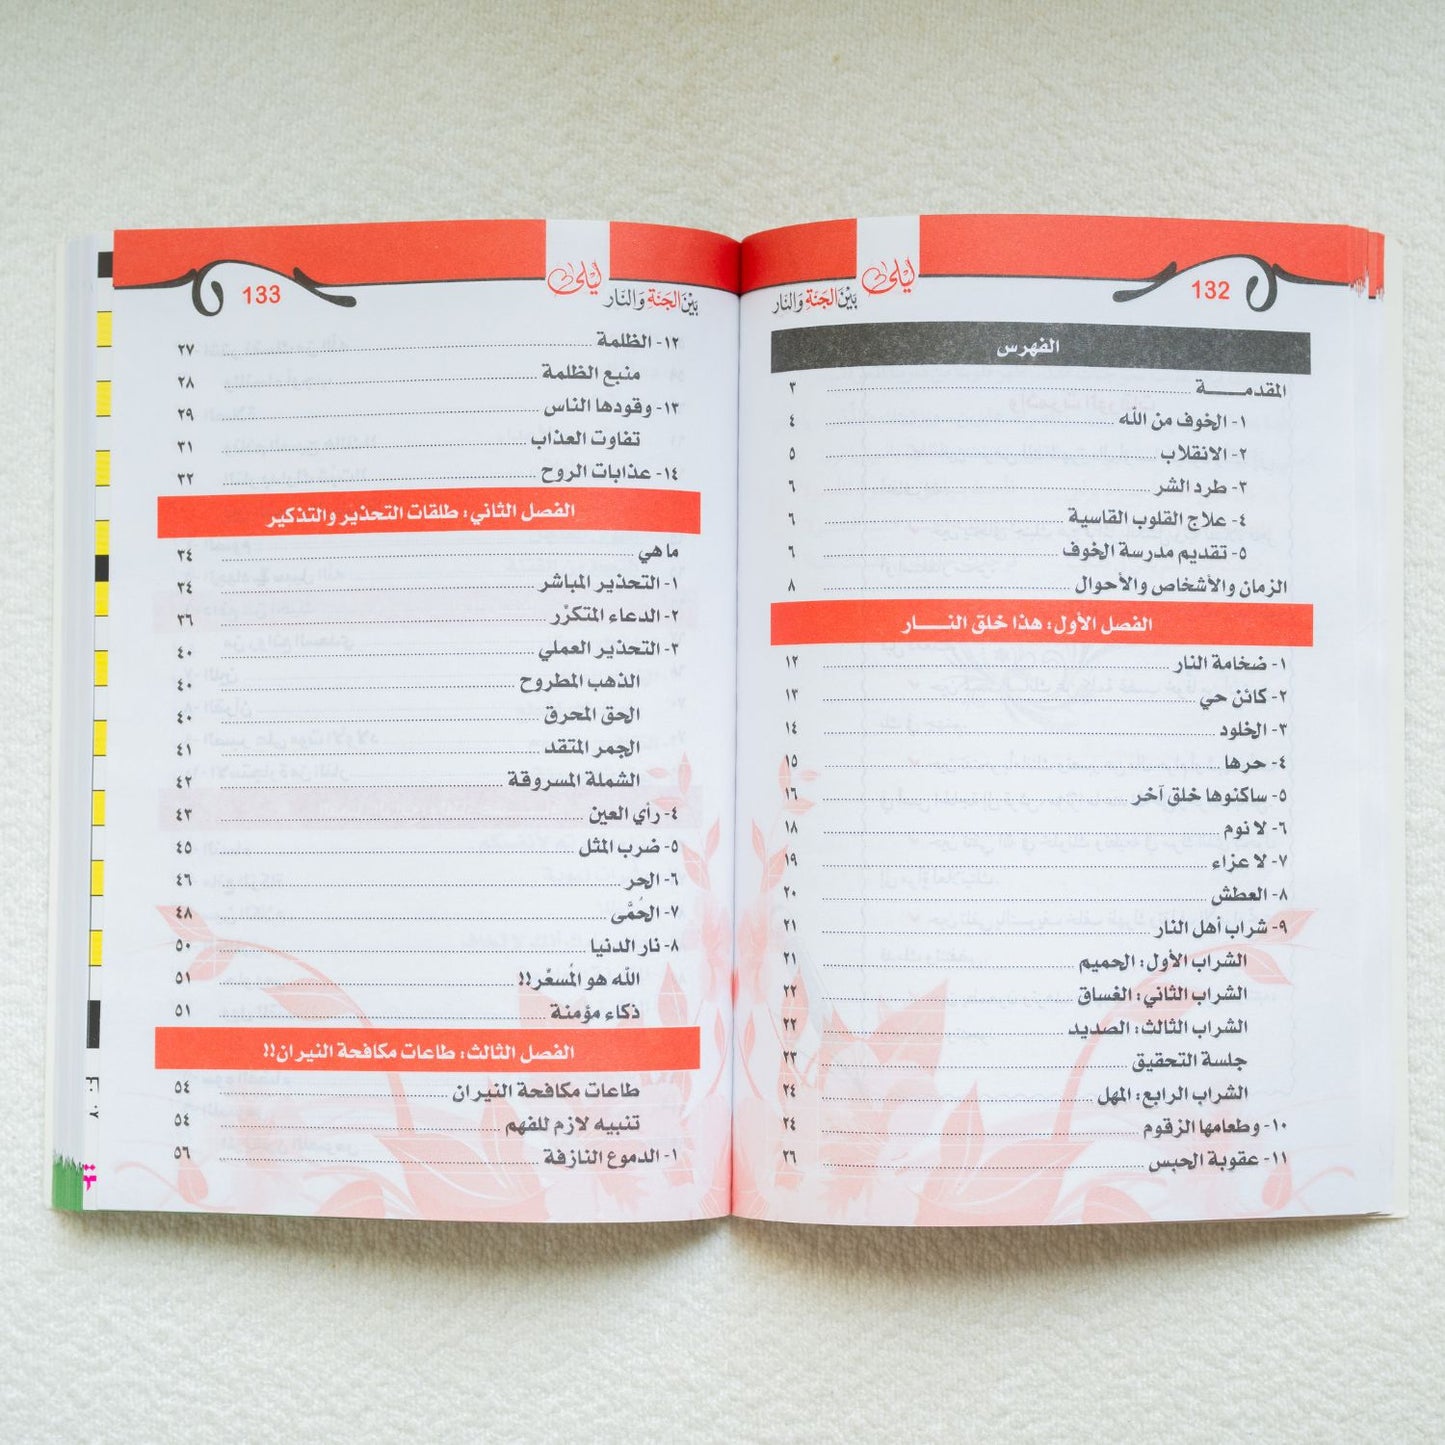 132
ليلى بين الجنة والنار
الفهرس
المقدمـــــــة ........ ٣
١- الخوف من الله ........ ٤
٢- الانقلاب ........ ٥
٣- طرد الشر ........ ٦
٤- علاج القلوب القاسية ........ ٦
٥- تقديم مدرسة الخوف ........ ٦
الزمان والأشخاص والأحوال ........ ٨
الفصل الأول: هذا خلق النـــــار
١- ضخامة النار ........ ١٢
٢- كائن حي ........ ١٣
٣- الخلود ........ ١٤
٤- حرها ........ ١٥
٥- ساكنوها خلق آخر ........ ١٦
٦- لا نوم ........ ١٨
٧- لا عزاء ........ ١٩
٨- العطش ........ ٢٠
٩- شراب أهل النار ........ ٢١
الشراب الأول: الحميم ........ ٢١
الشراب الثاني: الغساق ........ ٢٢
الشراب الثالث: الصديد ........ ٢٢
جلسة التحقيق ........ ٢٣
الشراب الرابع: المهل ........ ٢٤
١٠- وطعامها الزقوم ........ ٢٤
١١- عقوبة الحبس ........ ٢٦
ليلى بين الجنة والنار
133
١٢- الظلمة ........ ٢٧
منبع الظلمة ........ ٢٨
١٣- وقودها الناس ........ ٢٩
تفاوت العذاب ........ ٣١
١٤- عذابات الروح ........ ٣٢
الفصل الثاني: طلقات التحذير والتذكير
ما هي ........ ٣٤
١- التحذير المباشر ........ ٣٤
٢- الدعاء المتكرِّر ........ ٣٦
٣- التحذير العملي ........ ٤٠
الذهب المطروح ........ ٤٠
الحق المحرق ........ ٤٠
الجمر المتقد ........ ٤١
الشملة المسروقة ........ ٤٢
٤- رأي العين ........ ٤٣
٥- ضرب المثل ........ ٤٥
٦- الحر ........ ٤٦
٧- الحُمَّى ........ ٤٨
٨- نار الدنيا ........ ٥٠
الله هو المُسعِّر!! ........ ٥١
ذكاء مؤمنة ........ ٥١
الفصل الثالث: طاعات مكافحة النيران!!
طاعات مكافحة النيران ........ ٥٤
تنبيه لازم للفهم ........ ٥٤
١- الدموع النازفة ........ ٥٦